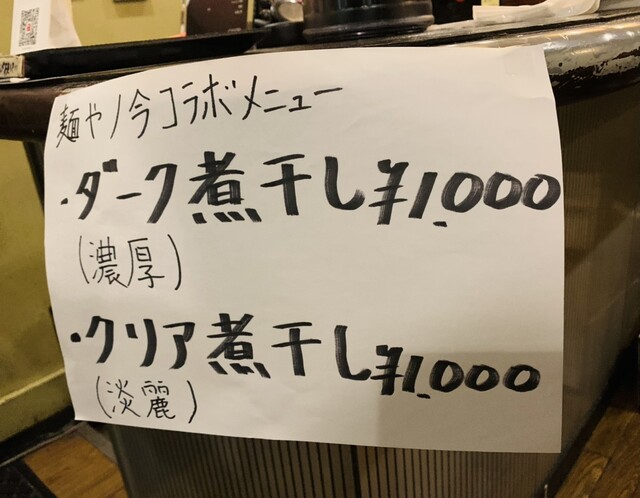 麺やノ今コラボメニュー
・ダーク煮干し¥1,000
(濃厚)
・クリア煮干し¥1,000
(淡麗)